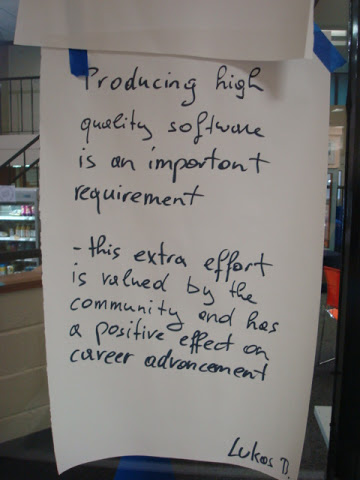 Producing high
quality software
is an important
requirement
- this extra effort
is valued by the
community and has
a positive effect on
career advancement
Lukas D.